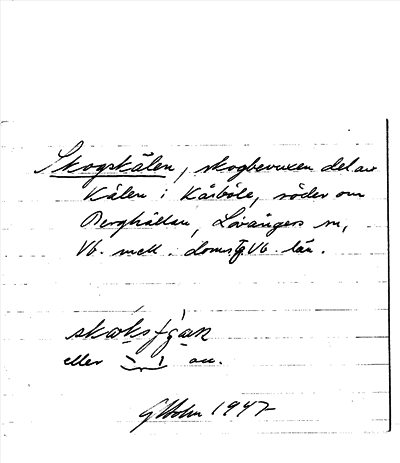 Skogskälen, skogbevuxen del av
Kälen i Kåsböle, söder om
Berghällan, Lövångers sn,
Vb. mell. doms. Vb. län.
eller an.
GHolm 1947